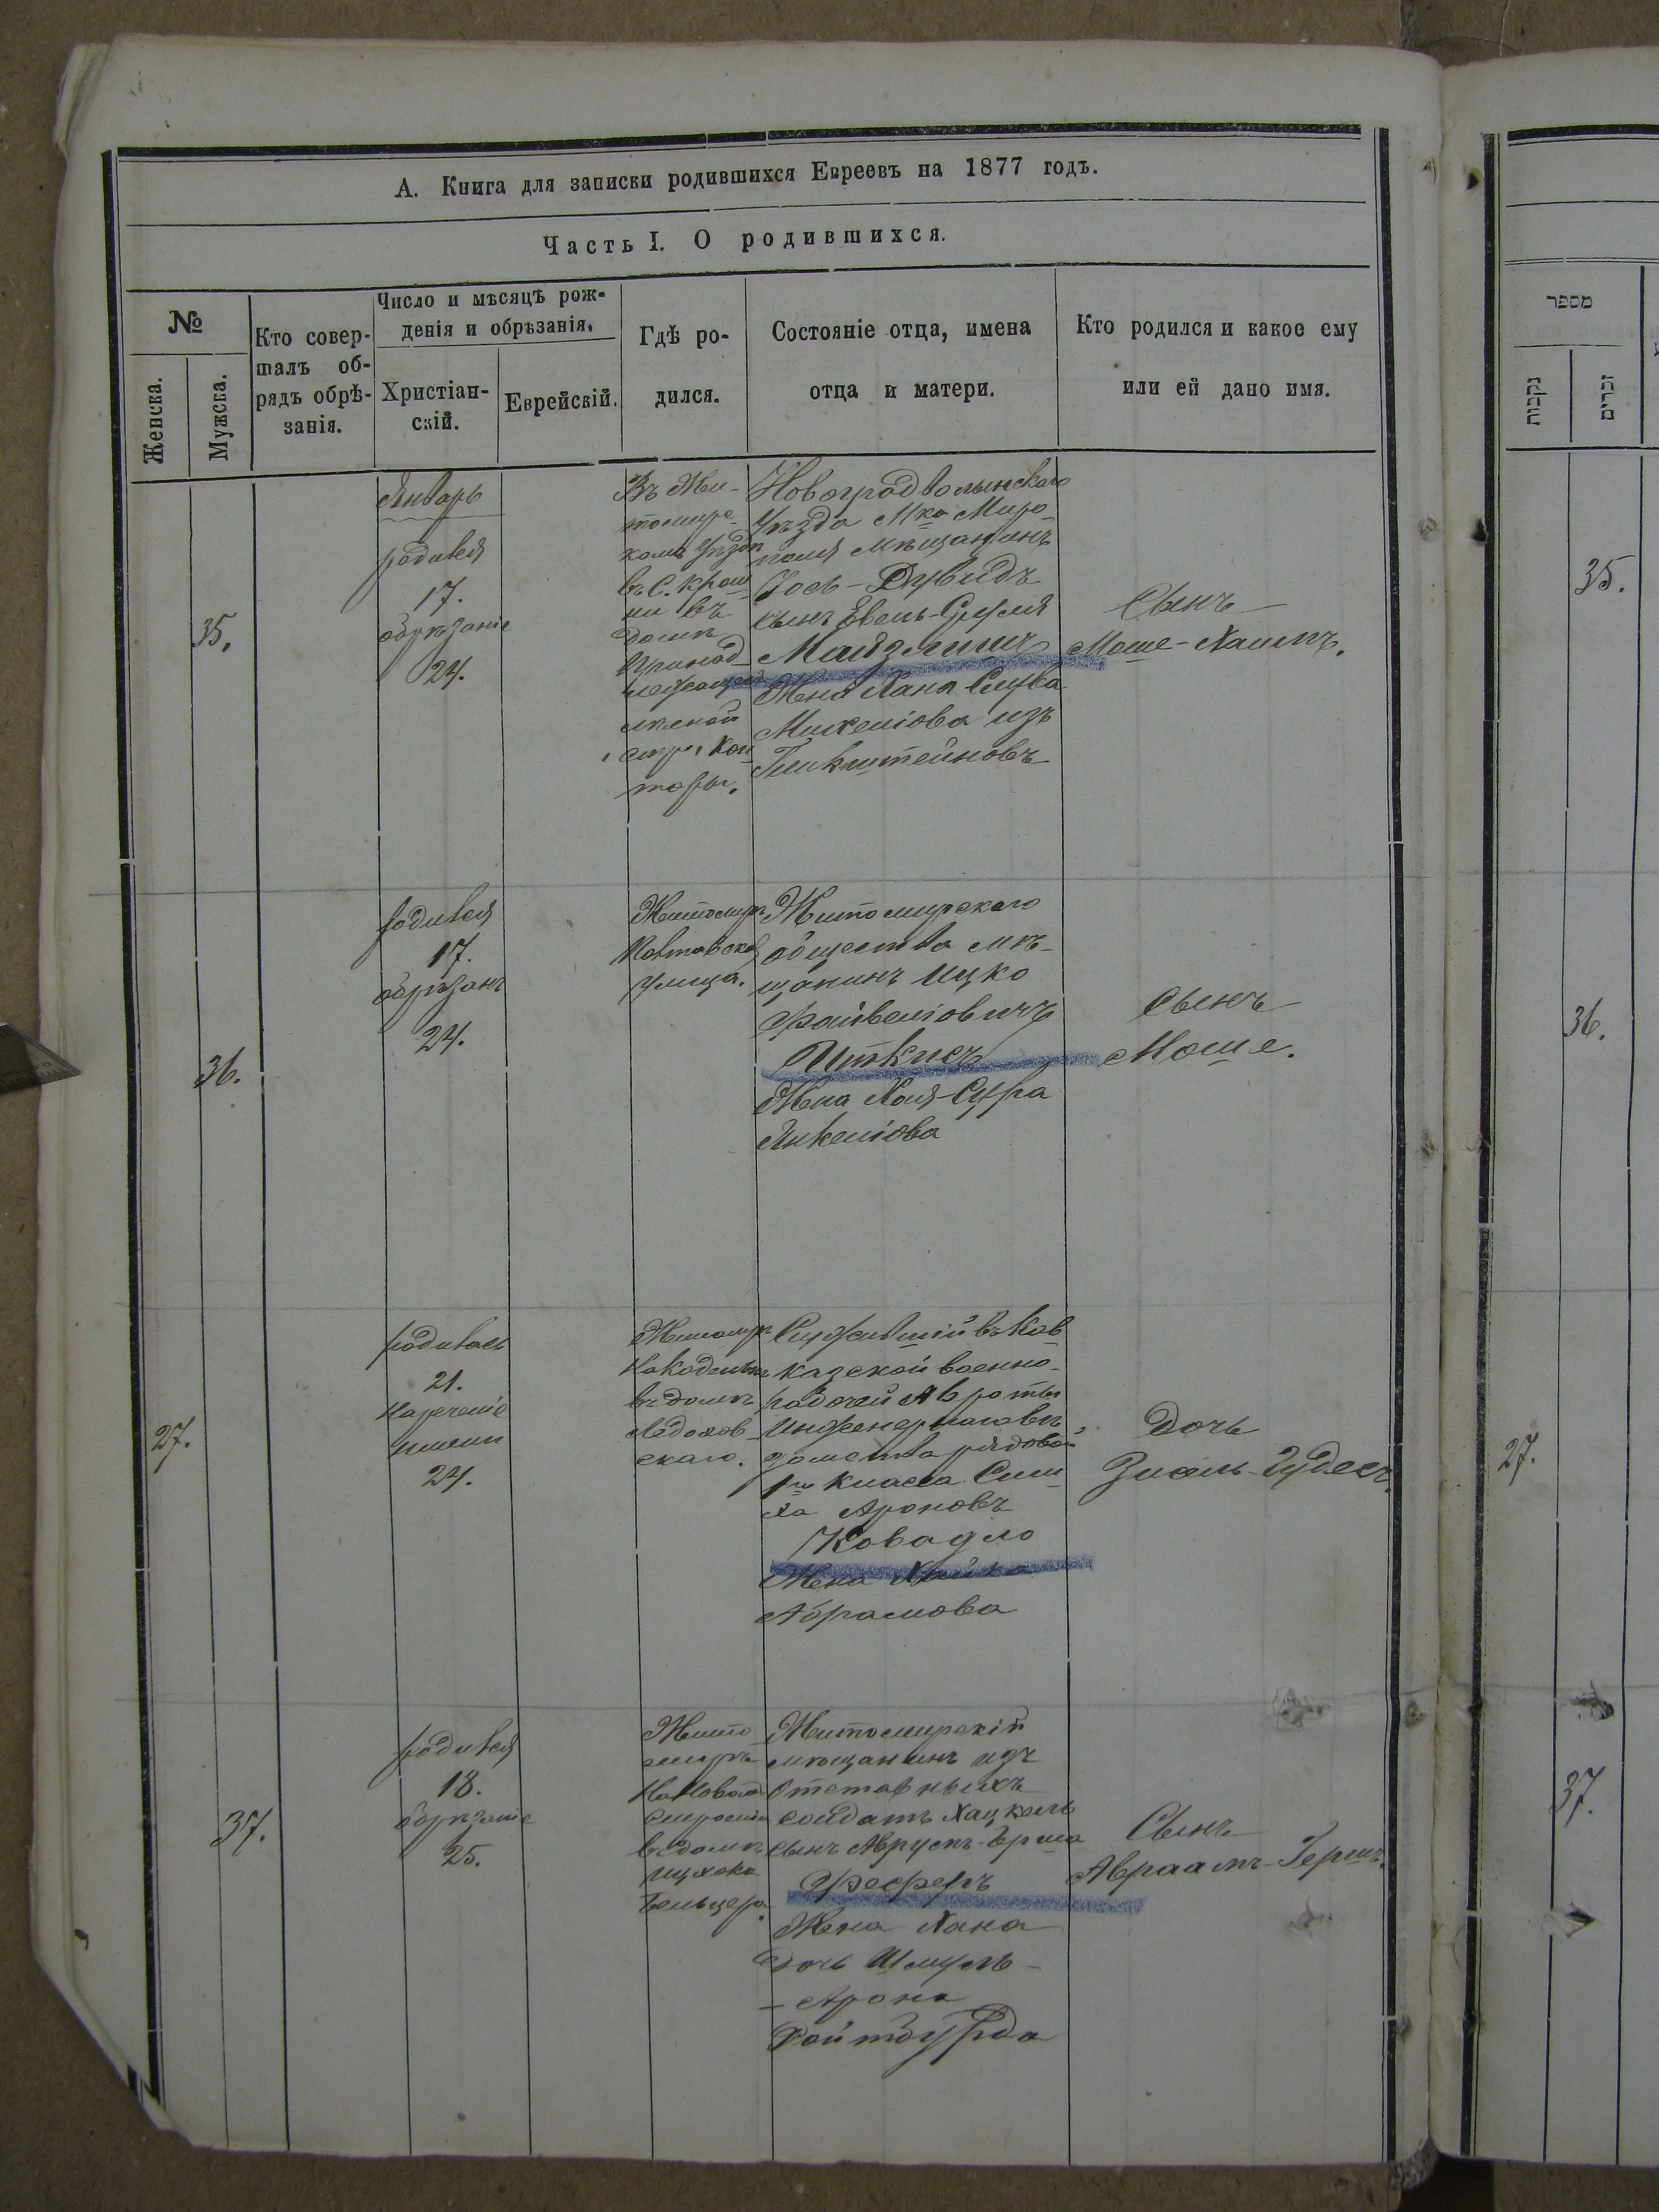 А. Книга для записки родившихся Евреевъ на 1877 годъ.
Часть I. О родившихся.
№
Женска.
Мужска.
Кто совер-
шалъ об-
рядъ обрѣ-
занія.
Число и мѣсяцъ рож-
денія и обрѣзанія.
Христіан-
скій.
Еврейскій.
Гдѣ ро-
дился.
Состояніе отца, имена
отца и матери.
Кто родился и какое ему
или ей дано имя.
35.
Январь
родився
17.
обрѣзаніе
24.
Въ Жи-
томирс-
комъ Уѣздѣ
въ С. Крош
ни въ
домѣ
Принад
лежащей
"
торы.
Новоградволынскаго
Уѣзда Мка Миро-
поля Мѣщанинъ
Іось-Дувидъ
сынъ Евель-Сруля
Майзлишъ
Жена Хана Слува
Михеліова изъ
Гликштейновъ
Сынъ
Моше-Хаимъ.
36.
родився
17.
обрѣзанъ
24.
Житомиръ
улица.
Житомирскаго
общества мѣ-
щанинъ Ицко
Файвеліовичъ
Иткисъ
Жена Хая-Сура
Янкеліова
Сынъ
Моше.
27.
родилась
21.
нареченіе
имени
24.
Житомиръ
въ домѣ
Ледохов-
скаго.
Служившій въ Кав
казской военно-
рабочей роты
рядовой
1го класса
Ароновъ
Ковадло
Жена
Абрамова
Дочь
Зисель-Гудесъ.
37.
родився
18.
обрѣзаніе
25.
Жито
миръ
въ домѣ
Ицхока
Бельцера.
Житомирскій
мѣщанинъ изъ
отставныхъ
солдатъ Хацкель
сынъ Аврумъ-Герша
Феферъ
Жена Хана
дочь Шмуль-
-Арона
Ройтбурда
Сынъ
Авраамъ-Гершъ.
מספר
נקבות
זכרים
35.
36.
27.
37.